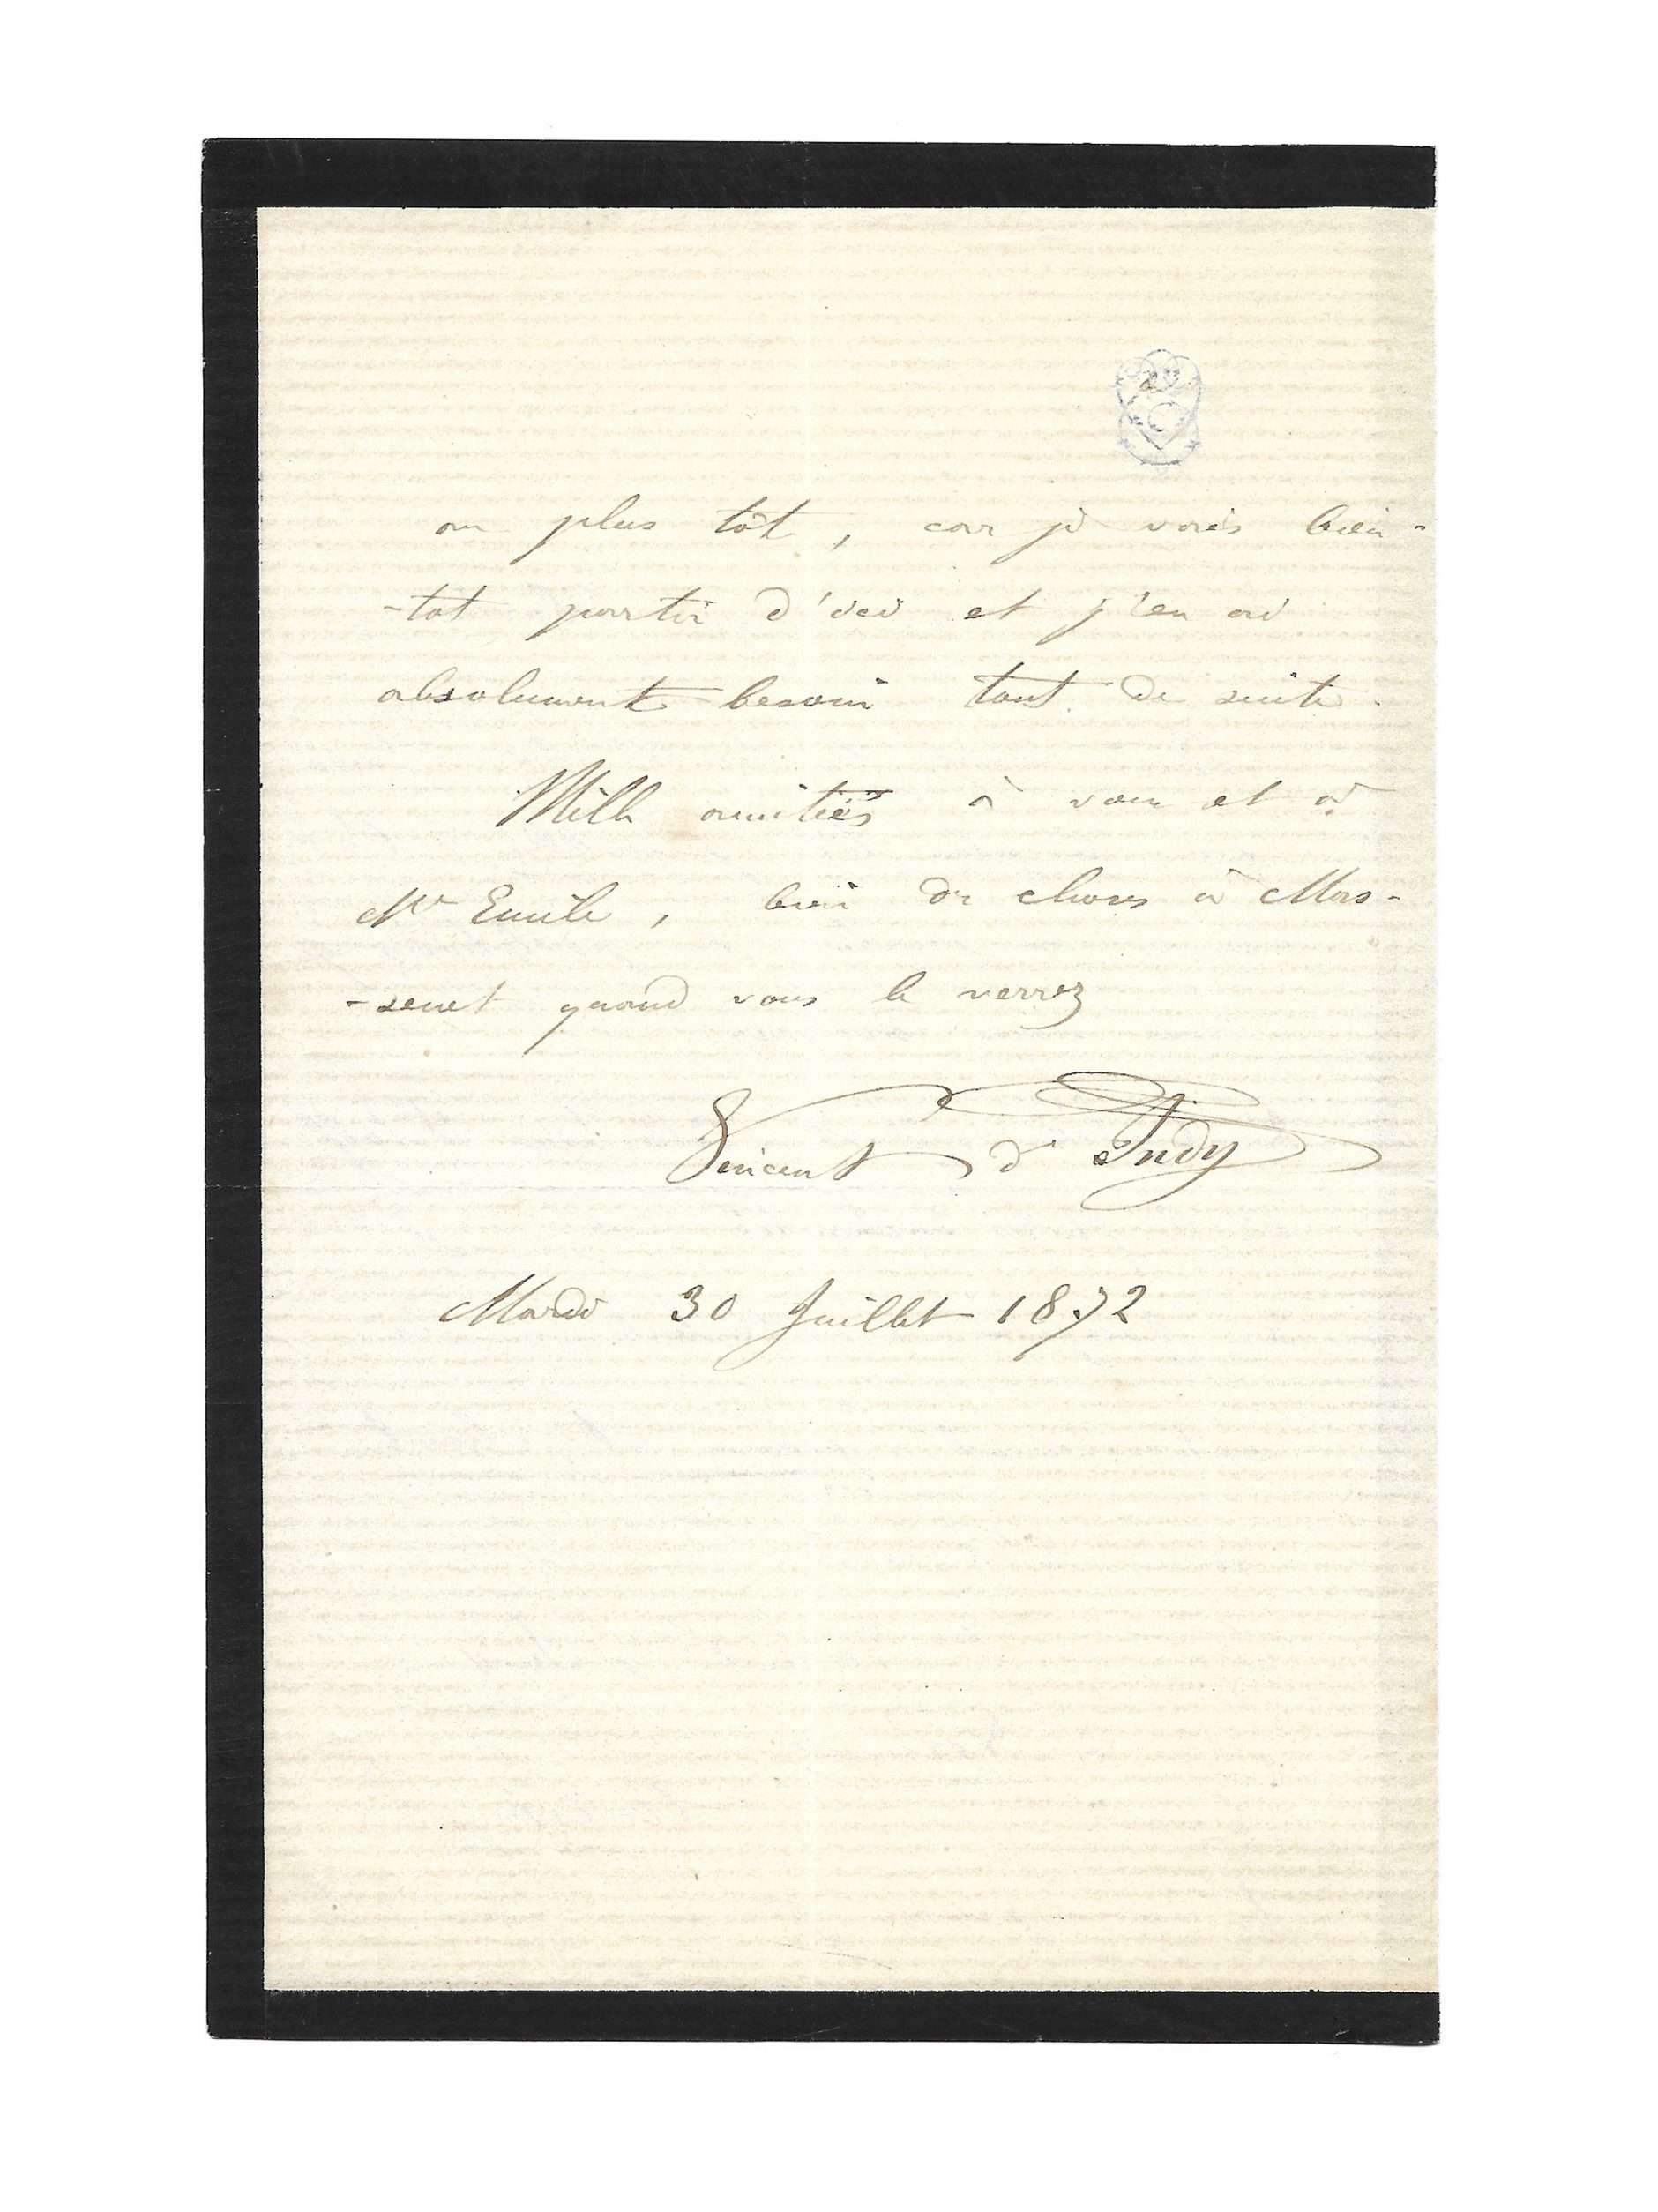 au plus tôt, car je vais bien-
-tot partir d'ici et j'en ai
absolument besoin tout de suite.
Mille amitiés à vous et à
Mr Emile, bien des choses à Mas-
-senet quand vous le verrez
Vincent d'Indy
Mardi 30 Juillet 1872